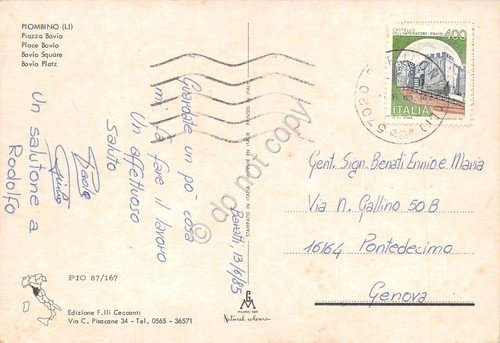 PIOMBINO (LI)
Piazza Bovio
Place Bovio
Bovio Square
Bovio Platz
Guardate un po' cosa
mi fa fare il lavoro
Un affettuoso
saluto
Un salutone a
Rodolfo
13/6/85
PIO 87/167
Edizione F.lli Ceccanti
Via C. Pisacane 34 - Tel. 0565 - 36571
STAMPATO IN ITALIA
PRINTED IN ITALY
MILANO
Natural colours
do not copy
400
ITALIA
57020
Gent. Sign. Benati Ennio e Maria
Via N. Gallino 50 B
16164 Pontedecimo
Genova